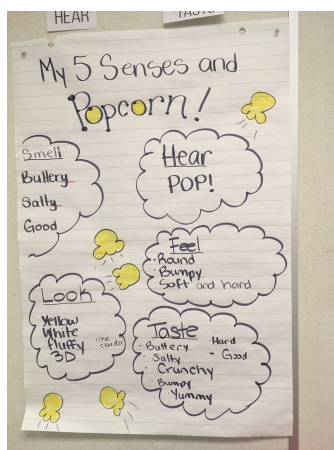 HEAR
TASTE
My 5 Senses and
Popcorn!
Smell
Buttery
Salty
Good
Hear
POP!
Feel
· Round
· Bumpy
· Soft and hard
Look
Yellow
White
fluffy like clouds
3D
Taste
· Buttery Hard
· Salty - Good
· Crunchy
· Bumpy
Yummy